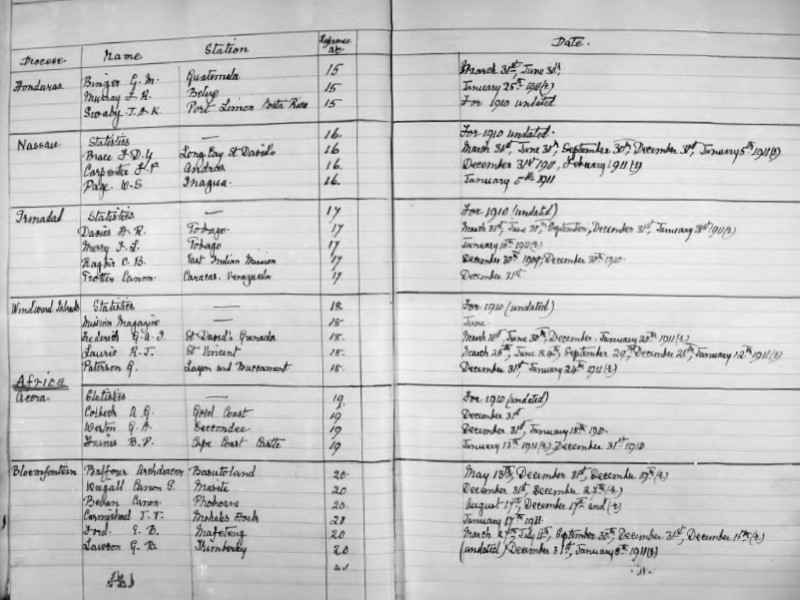 Diocese Name Station Reference No. Date.
Honduras Binger G. M. Guatemala 15 March 31st, June 30th,
Murray J. R. Belize 15 January 25th 1911(2)
Swaby J. A. K. Port Limon Costa Rica 15 For 1910 undated
Nassau Statistics — 16. For 1910 undated.
Brace J. D. Y Long Cay St Davids 16. March 31st, June 30th, September 30th, December 31st, January 5th 1911(2)
Carpenter J. P. Andros 16. December 31st 1910, February 1911(4)
Page W. S Inagua. 16. January 5th 1911
Trinidad Statistics — 17 For 1910 (undated)
Davies A. R. Tobago 17 March 31st, June 30th, September, December 31st, January 31st 1911(2)
Merry J. L. Tobago 17 January 10th 1911(2)
Ragbir C. B. East Indian Mission 17 December 30th 1909, December 30th 1910.
Trotter Canon. Caracas. Venezuela 17 December 31st
Windward Islands Statistics — 18. For 1910 (undated)
Mission Magazine — 18. June
Frederick G. A. J. St David's Grenada 18. March 31st, June 30th, December. January 20th 1911(2)
Laurie R. J. St Vincent 18. March 25th, June 24th, September 29th, December 28th, January 12th 1911(2)
Paterson G. Layou and Buccament 18. December 31st January 24th 1911(2)
Africa
Accra. Statistics — 19. For 1910 (undated)
Colbeck A. G. Gold Coast 19 December 31st
Weston G. A. Seccondee 19 December 31st, January 18th 1910.
Haines B. P. Cape Coast Castle 19 January 13th 1911(2), December 31st 1910
Bloemfontein Balfour Archdeacon Basutoland 20. May 13th, December 31st, December 19th(2)
Weigall Canon G. Masite 20 December 31st, December 27th(2)
Bevan Canon. Phokoane 20. August 17th, December 17th and (2)
Carmichael J. T. Mohales Hoek 20 January 17th 1911.
Ford. E. B. Mafeteng 20 March 27th, July 11th, September 30th, December 31st, December 15th(2)
Lawson G. N. Kimberley 20 (undated) December 31st, January 9th 1911(2)